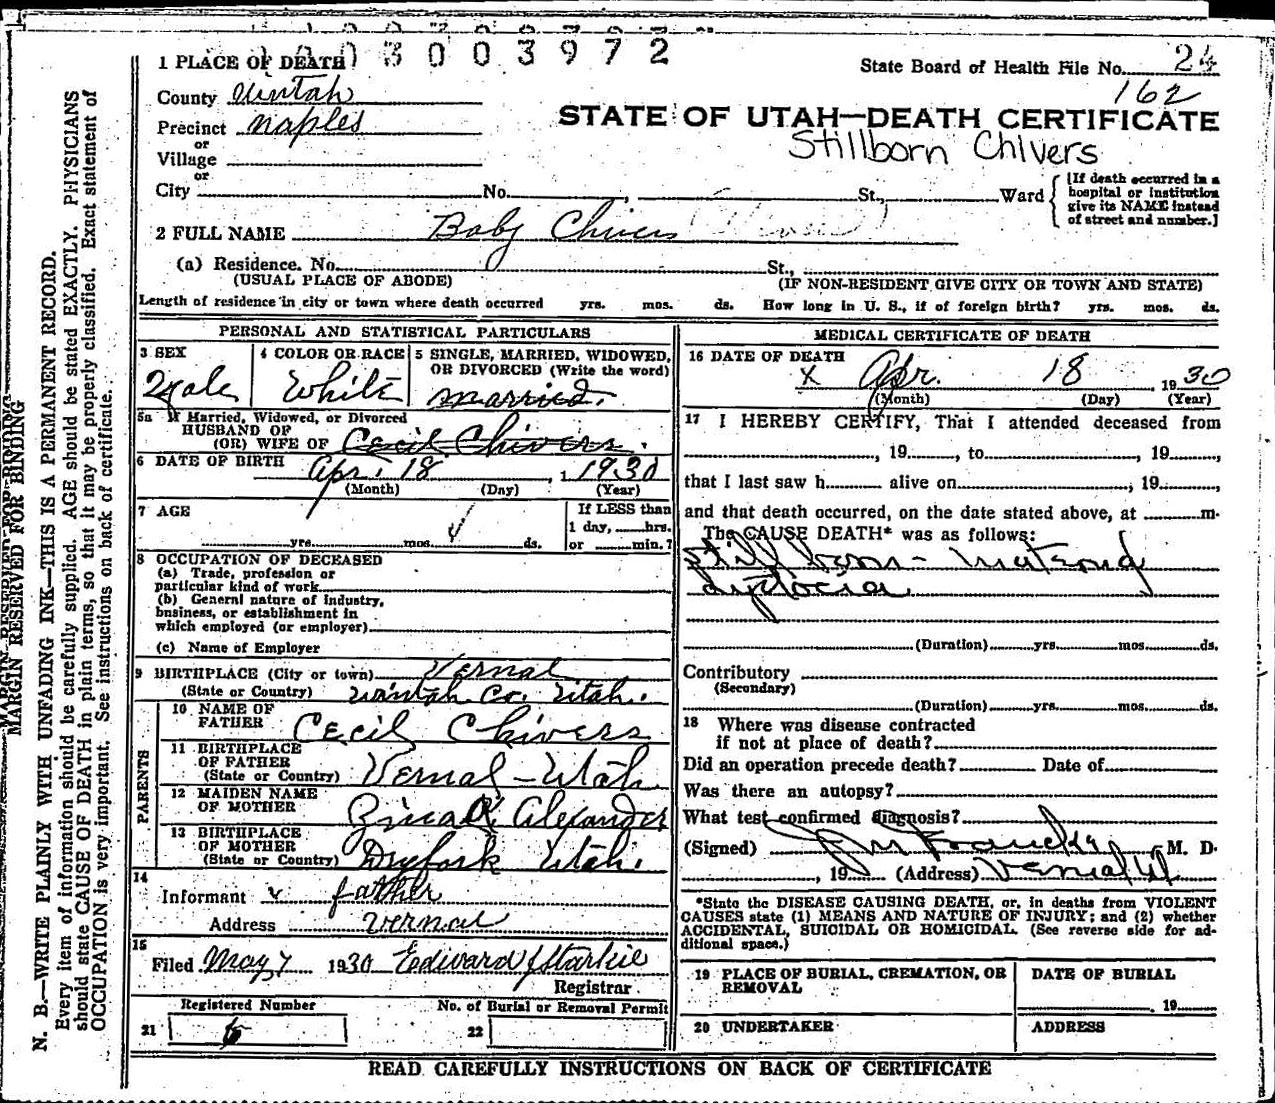 1003003972
1 PLACE OF DEATH
State Board of Health File No. 24
County Uintah
162
Precinct Naples
STATE OF UTAH—DEATH CERTIFICATE
or
Stillborn Chivers
Village
or
City No. , St., Ward
[If death occurred in a hospital or institution give its NAME instead of street and number.]
2 FULL NAME Baby Chivers
(a) Residence. No. St.,
(USUAL PLACE OF ABODE) (IF NON-RESIDENT GIVE CITY OR TOWN AND STATE)
Length of residence in city or town where death occurred yrs. mos. ds. How long in U. S., if of foreign birth? yrs. mos. ds.
PERSONAL AND STATISTICAL PARTICULARS
3 SEX
Male
4 COLOR OR RACE
White
5 SINGLE, MARRIED, WIDOWED, OR DIVORCED (Write the word)
married.
5a If Married, Widowed, or Divorced
HUSBAND OF
(OR) WIFE OF Cecil Chivers.
6 DATE OF BIRTH Apr. 18, 1 1930
(Month) (Day) (Year)
7 AGE
yrs. mos. ds.
If LESS than
1 day, hrs.
or min.?
8 OCCUPATION OF DECEASED
(a) Trade, profession or
particular kind of work
(b) General nature of industry,
business, or establishment in
which employed (or employer)
(c) Name of Employer
9 BIRTHPLACE (City or town) Vernal
(State or Country) Uintah Co. Utah.
PARENTS
10 NAME OF
FATHER Cecil Chivers
11 BIRTHPLACE
OF FATHER
(State or Country) Vernal - Utah
12 MAIDEN NAME
OF MOTHER Zina R. Alexander
13 BIRTHPLACE
OF MOTHER
(State or Country) Dryfork Utah.
14
Informant father
Address Vernal
15
Filed May 7 1930 Edward J Starkie
Registrar.
Registered Number
21
No. of Burial or Removal Permit
22
MEDICAL CERTIFICATE OF DEATH
16 DATE OF DEATH
x Apr. 18, 1930
(Month) (Day) (Year)
17 I HEREBY CERTIFY, That I attended deceased from
, 19 , to , 19 ,
that I last saw h alive on , 19 ,
and that death occurred, on the date stated above, at m.
The CAUSE DEATH* was as follows:
Still born -
dystocia
(Duration) yrs. mos. ds.
Contributory
(Secondary)
(Duration) yrs. mos. ds.
18 Where was disease contracted
if not at place of death?
Did an operation precede death? Date of
Was there an autopsy?
What test confirmed diagnosis?
(Signed) M. D.
, 19 (Address) Vernal Ut
*State the DISEASE CAUSING DEATH, or, in deaths from VIOLENT
CAUSES state (1) MEANS AND NATURE OF INJURY; and (2) whether
ACCIDENTAL, SUICIDAL OR HOMICIDAL. (See reverse side for ad-
ditional space.)
19 PLACE OF BURIAL, CREMATION, OR
REMOVAL
DATE OF BURIAL
, 19
20 UNDERTAKER
ADDRESS
READ CAREFULLY INSTRUCTIONS ON BACK OF CERTIFICATE
MARGIN RESERVED FOR BINDING
N. B.—WRITE PLAINLY WITH UNFADING INK—THIS IS A PERMANENT RECORD.
Every item of information should be carefully supplied. AGE should be stated EXACTLY. PHYSICIANS
should state CAUSE OF DEATH in plain terms, so that it may be properly classified. Exact statement of
OCCUPATION is very important. See instructions on back of certificate.